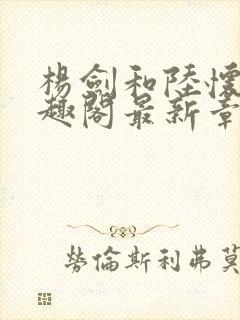 楊劍和陸懷
趣閣最新章
勞倫斯利弗莫